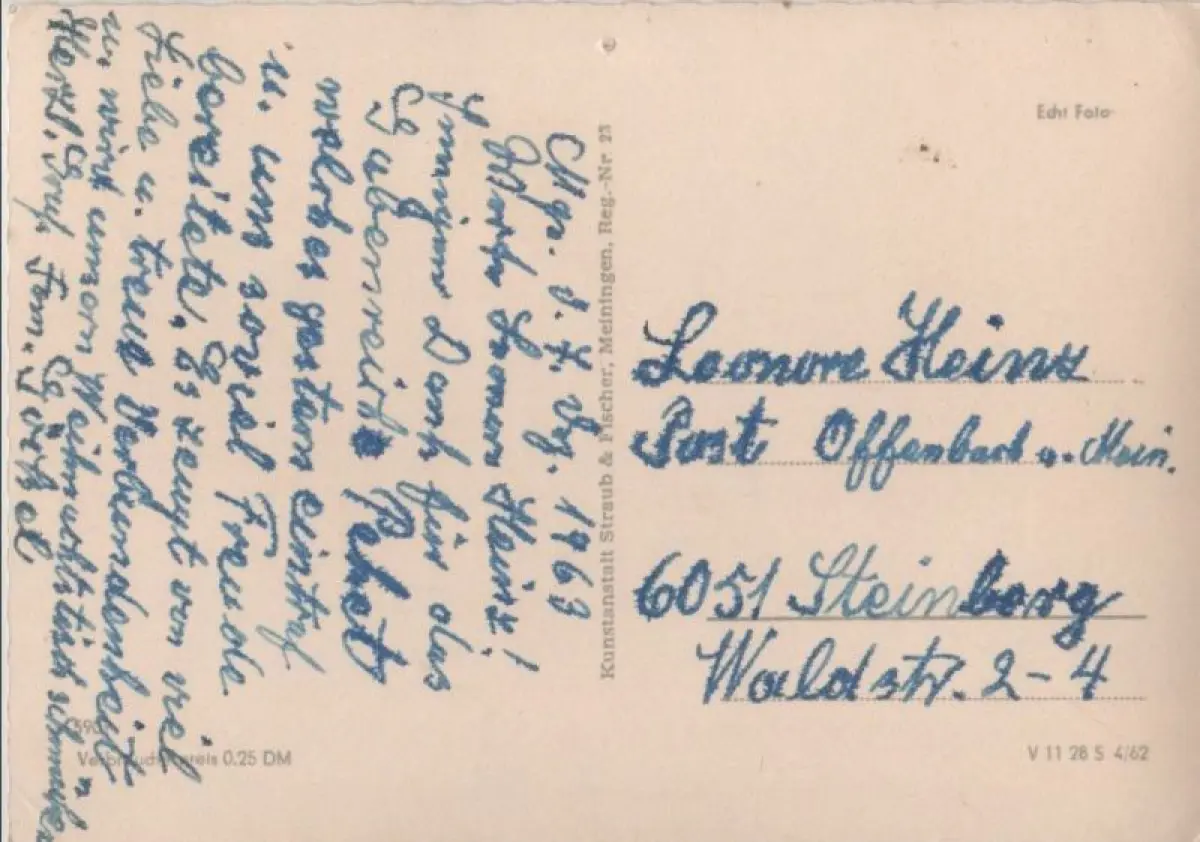 d. 7. Dez. 1963
Werte Leonore Heinz!
Innigen Dank für das
Gabenreich Paket
welches gestern eintraf
u. uns soviel Freude
bereitete. Es zeugt von viel
Liebe u. treue Verbundenheit
u. wird unsern Weihnachtstisch schmücken
Herzl. Gruß Fam.
Kunstanstalt Straub & Fischer, Meiningen, Reg.-Nr. 23
Echt Foto
Leonore Heinz
Post Offenbach a. Main.
6051 Steinberg
Waldstr. 2-4
590
Verbraucherpreis 0.25 DM
V 11 28 S 4/62